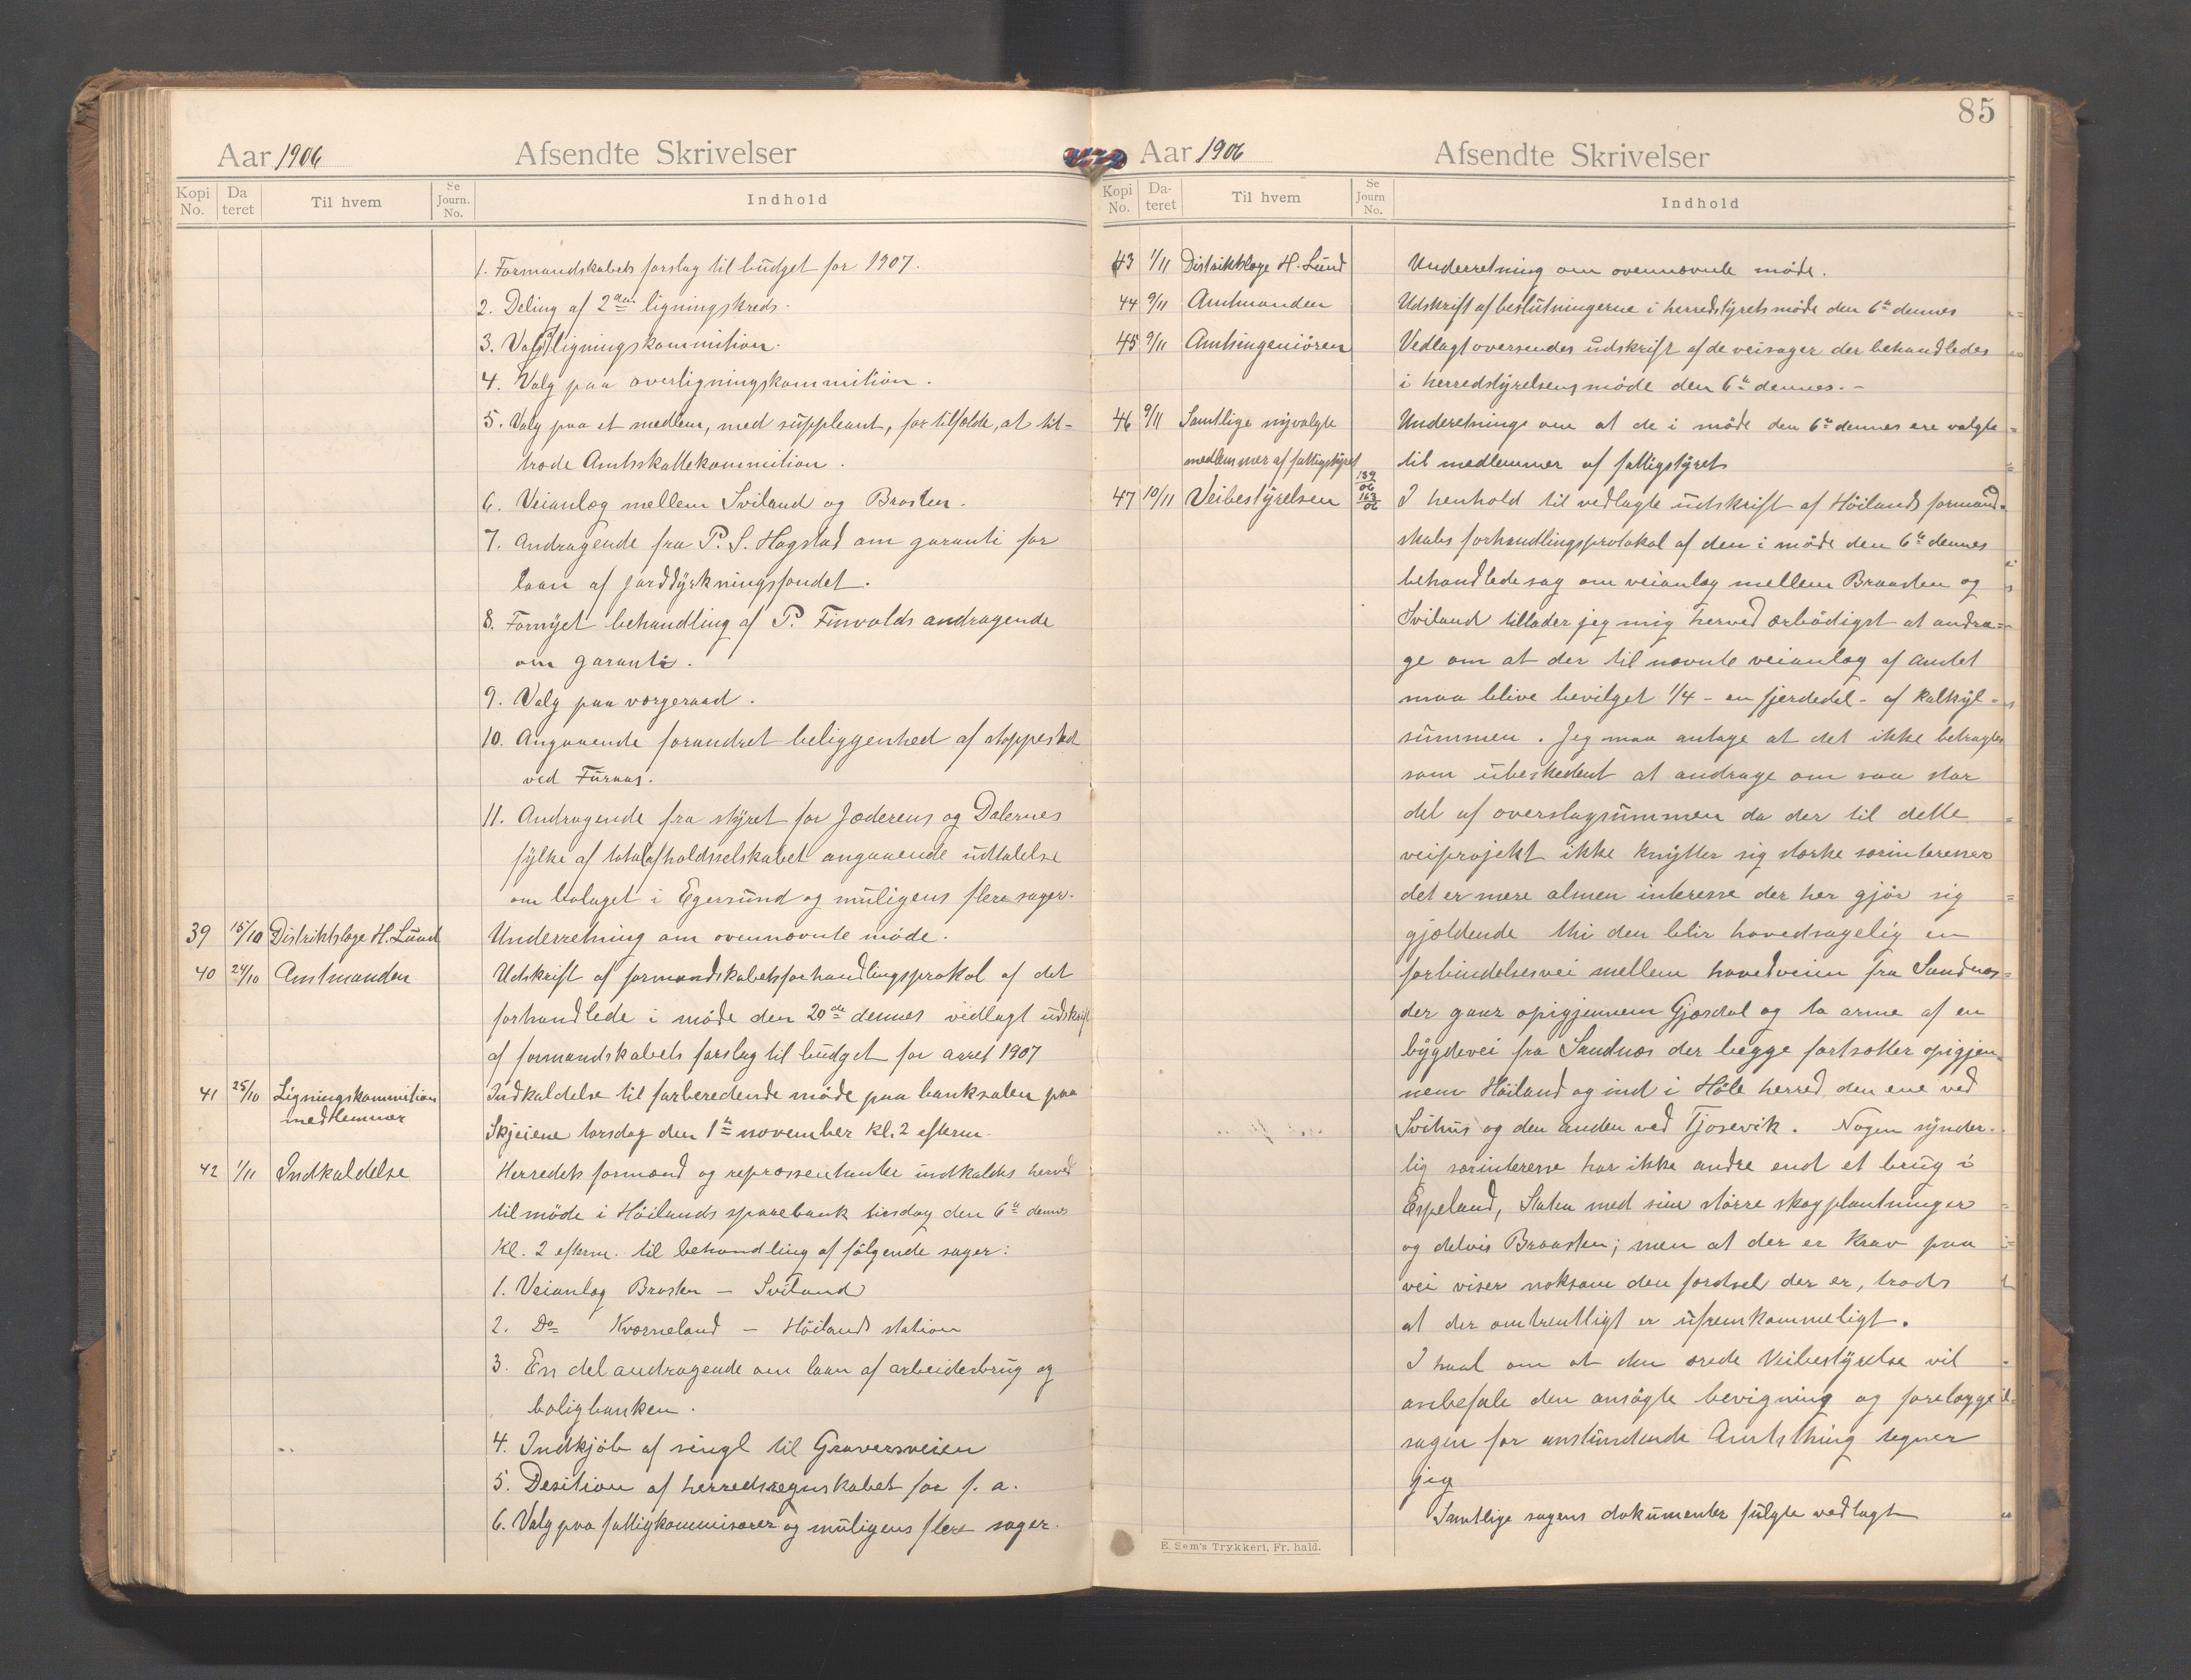 Aar 1906 Afsendte Skrivelser
Kopi No. Da teret Til hvem Se Journ. No. Indhold
1. Formandskabets forslag til budget for 1907.
2. Deling af 2den ligningskreds.
3. Valg af ligningskommition.
4. Valg paa overligningskommition.
5. Valg paa et medlem, med suppleant, for tilfælde, at til-
træde Amtsskattekommition.
6. Veianlæg mellem Sviland og Brasten.
7. Andragende fra P. S. Hogstad om garanti for
laan af jorddyrkningsfondet.
8. Fornyet behandling af P. Finvolds andragende
om garanti.
9. Valg paa vergeraad.
10. Angaaende forandret beliggenhed af stoppested
ved Furaas.
11. Andragende fra styret for Jæderens og Dalernes
fylke af totalafholdsselskabet angaaende udtalelse
om bolaget i Egersund og muligens flere sager.
39 15/10 Distriktslæge H. Lund Underretning om ovennævnte møde.
40 24/10 Amtmanden Udskrift af formandskabetsforhandlingsprokol af det
forhandlede i møde den 20de dennes vedlagt udskrift
af formandskabets forslag til budget for aaret 1907
41 25/10 Ligningskommition Indkaldelse til forberedende møde paa banksalen paa
medlemmer
Skjeiene torsdag den 1te november kl. 2 efterm.
42 1/11 Indkaldelse Herredets formænd og repræssentanter indkaldes herved
til møde i Höilands sparebank tirsdag den 6te dennes
Kl. 2 efterm. til behandling af følgende sager:
1. Veianlæg Brasten – Sviland
2. Do Kværneland – Höilands station
3. En del andragende om laan af arbeiderbrug og
boligbanken.
4. Indkjøb af singl til Graversveien
5. Desition af herredsregnskabet for f. a.
6. Valg paa fattigkommisærer og muligens flere sager.
85
Aar 1906 Afsendte Skrivelser
Kopi No. Da- teret Til hvem Se Journ No. Indhold
43 1/11 Distriktslæge H. Lund Underretning om ovennævnte møde.
44 9/11 Amtmanden Udskrift af beslutningerne i herredstyrets møde den 6te dennes
45 9/11 Amtsingeniören Vedlagt oversendes udskrift af de veisager der behandledes
i herredstyrelsens møde den 6te dennes. –
46 9/11 Samtlige nyvalgte Underetnings om at de i møde den 6te dennes ere valgte
medlemmer af fattigstyret til medlemmer af fattigstyret
47 10/11 Veibestyrelsen 139/06 163/06 I henhold til vedlagte udskrift af Höilands formand-
skabs forhandlingsprotokol af den i møde den 6te dennes
behandlede sag om veianlæg mellem Braasten og
Sviland tillader jeg mig herved ærbødigst at andra-
ge om at der til nævnte veianlæg af amtet
maa blive bevilget 1/4 – en fjerdedel – af kalkyl-
summen. Jeg maa antage at det ikke betragtes
som ubeskedent at andrage om saa stor
del af overslagsummen da der til dette
veiprojekt ikke knytter sig stærke særinteresser
det er mere almen interesse der her gjør sig
gjældende thi den blir hovedsagelig en
forbindelsesvei mellem hovedveien fra Sandnæs
der gaar opigjennem Gjæsdal og to arme af en
bygdevei fra Sandnæs der begge fortsætter opigjen-
nem Höiland og ind i Höle herred, den ene ved
Svihus og den anden ved Tjosevik. Nogen synder-
lig særinteresse har ikke andre end et brug i
Espeland, Staten med sine større skogplantninger
og delvis Braasten; men at der er krav paa
vei viser noksom den færdsel der er, trods
at der omtrentligt er ufremkommeligt.
I haab om at den ærede Veibestyrelse vil
anbefale den ansøgte bevigning og forelægge
sagen for anstundende Amtsthing tegner
jeg
Samtlige sagens dokumenter fulgte vedlagt
E. Sem's Trykkeri, Fr. hald.